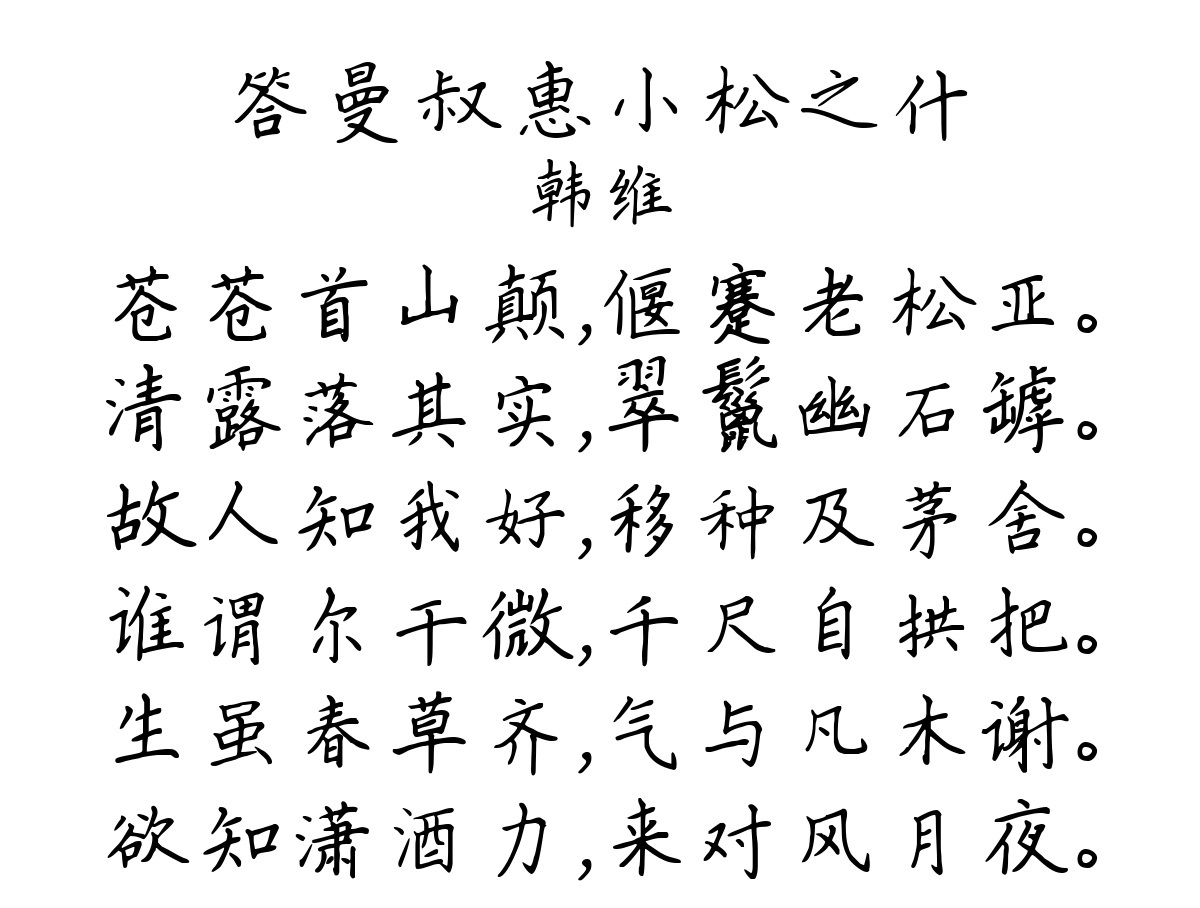 答曼叔惠小松之什
韩维
苍苍首山颠,偃蹇老松亚。
清露落其实,翠鬣幽石罅。
故人知我好,移种及茅舍。
谁谓尔干微,千尺自拱把。
生虽春草齐,气与凡木谢。
欲知潇酒力,来对风月夜。